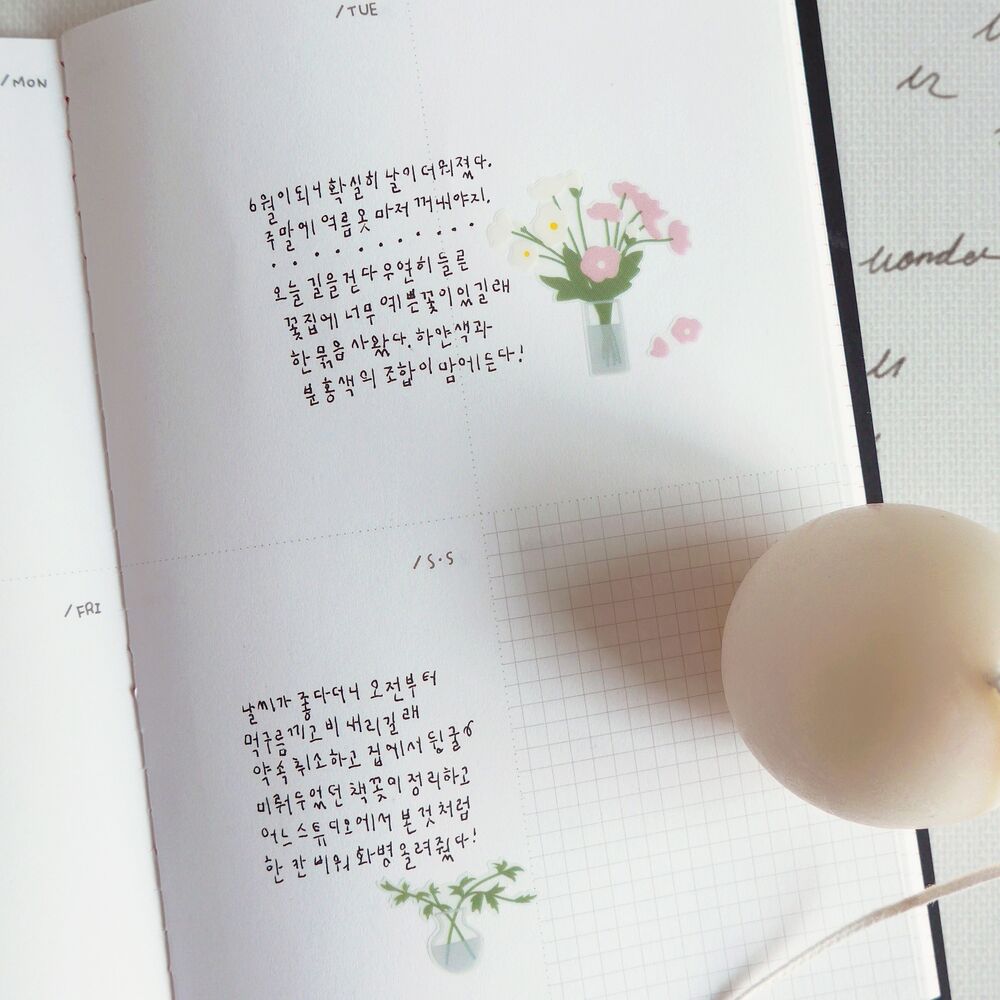 /MON
/TUE
6월이 되니 확실히 날이 더워졌다.
주말에 여름옷 마저 꺼내야지.
오늘 길을 걷다 우연히 들른
꽃집에 너무 예쁜 꽃이 있길래
한 묶음 사왔다. 하얀색과
분홍색의 조합이 맘에 든다!
/FRI
/S·S
날씨가 좋다더니 오전부터
먹구름 끼고 비 내리길래
약속 취소하고 집에서 뒹굴
미뤄두었던 책꽂이 정리하고
어느 스튜디오에서 본 것처럼
한 칸 비워 화병 올려줬다!
wonder